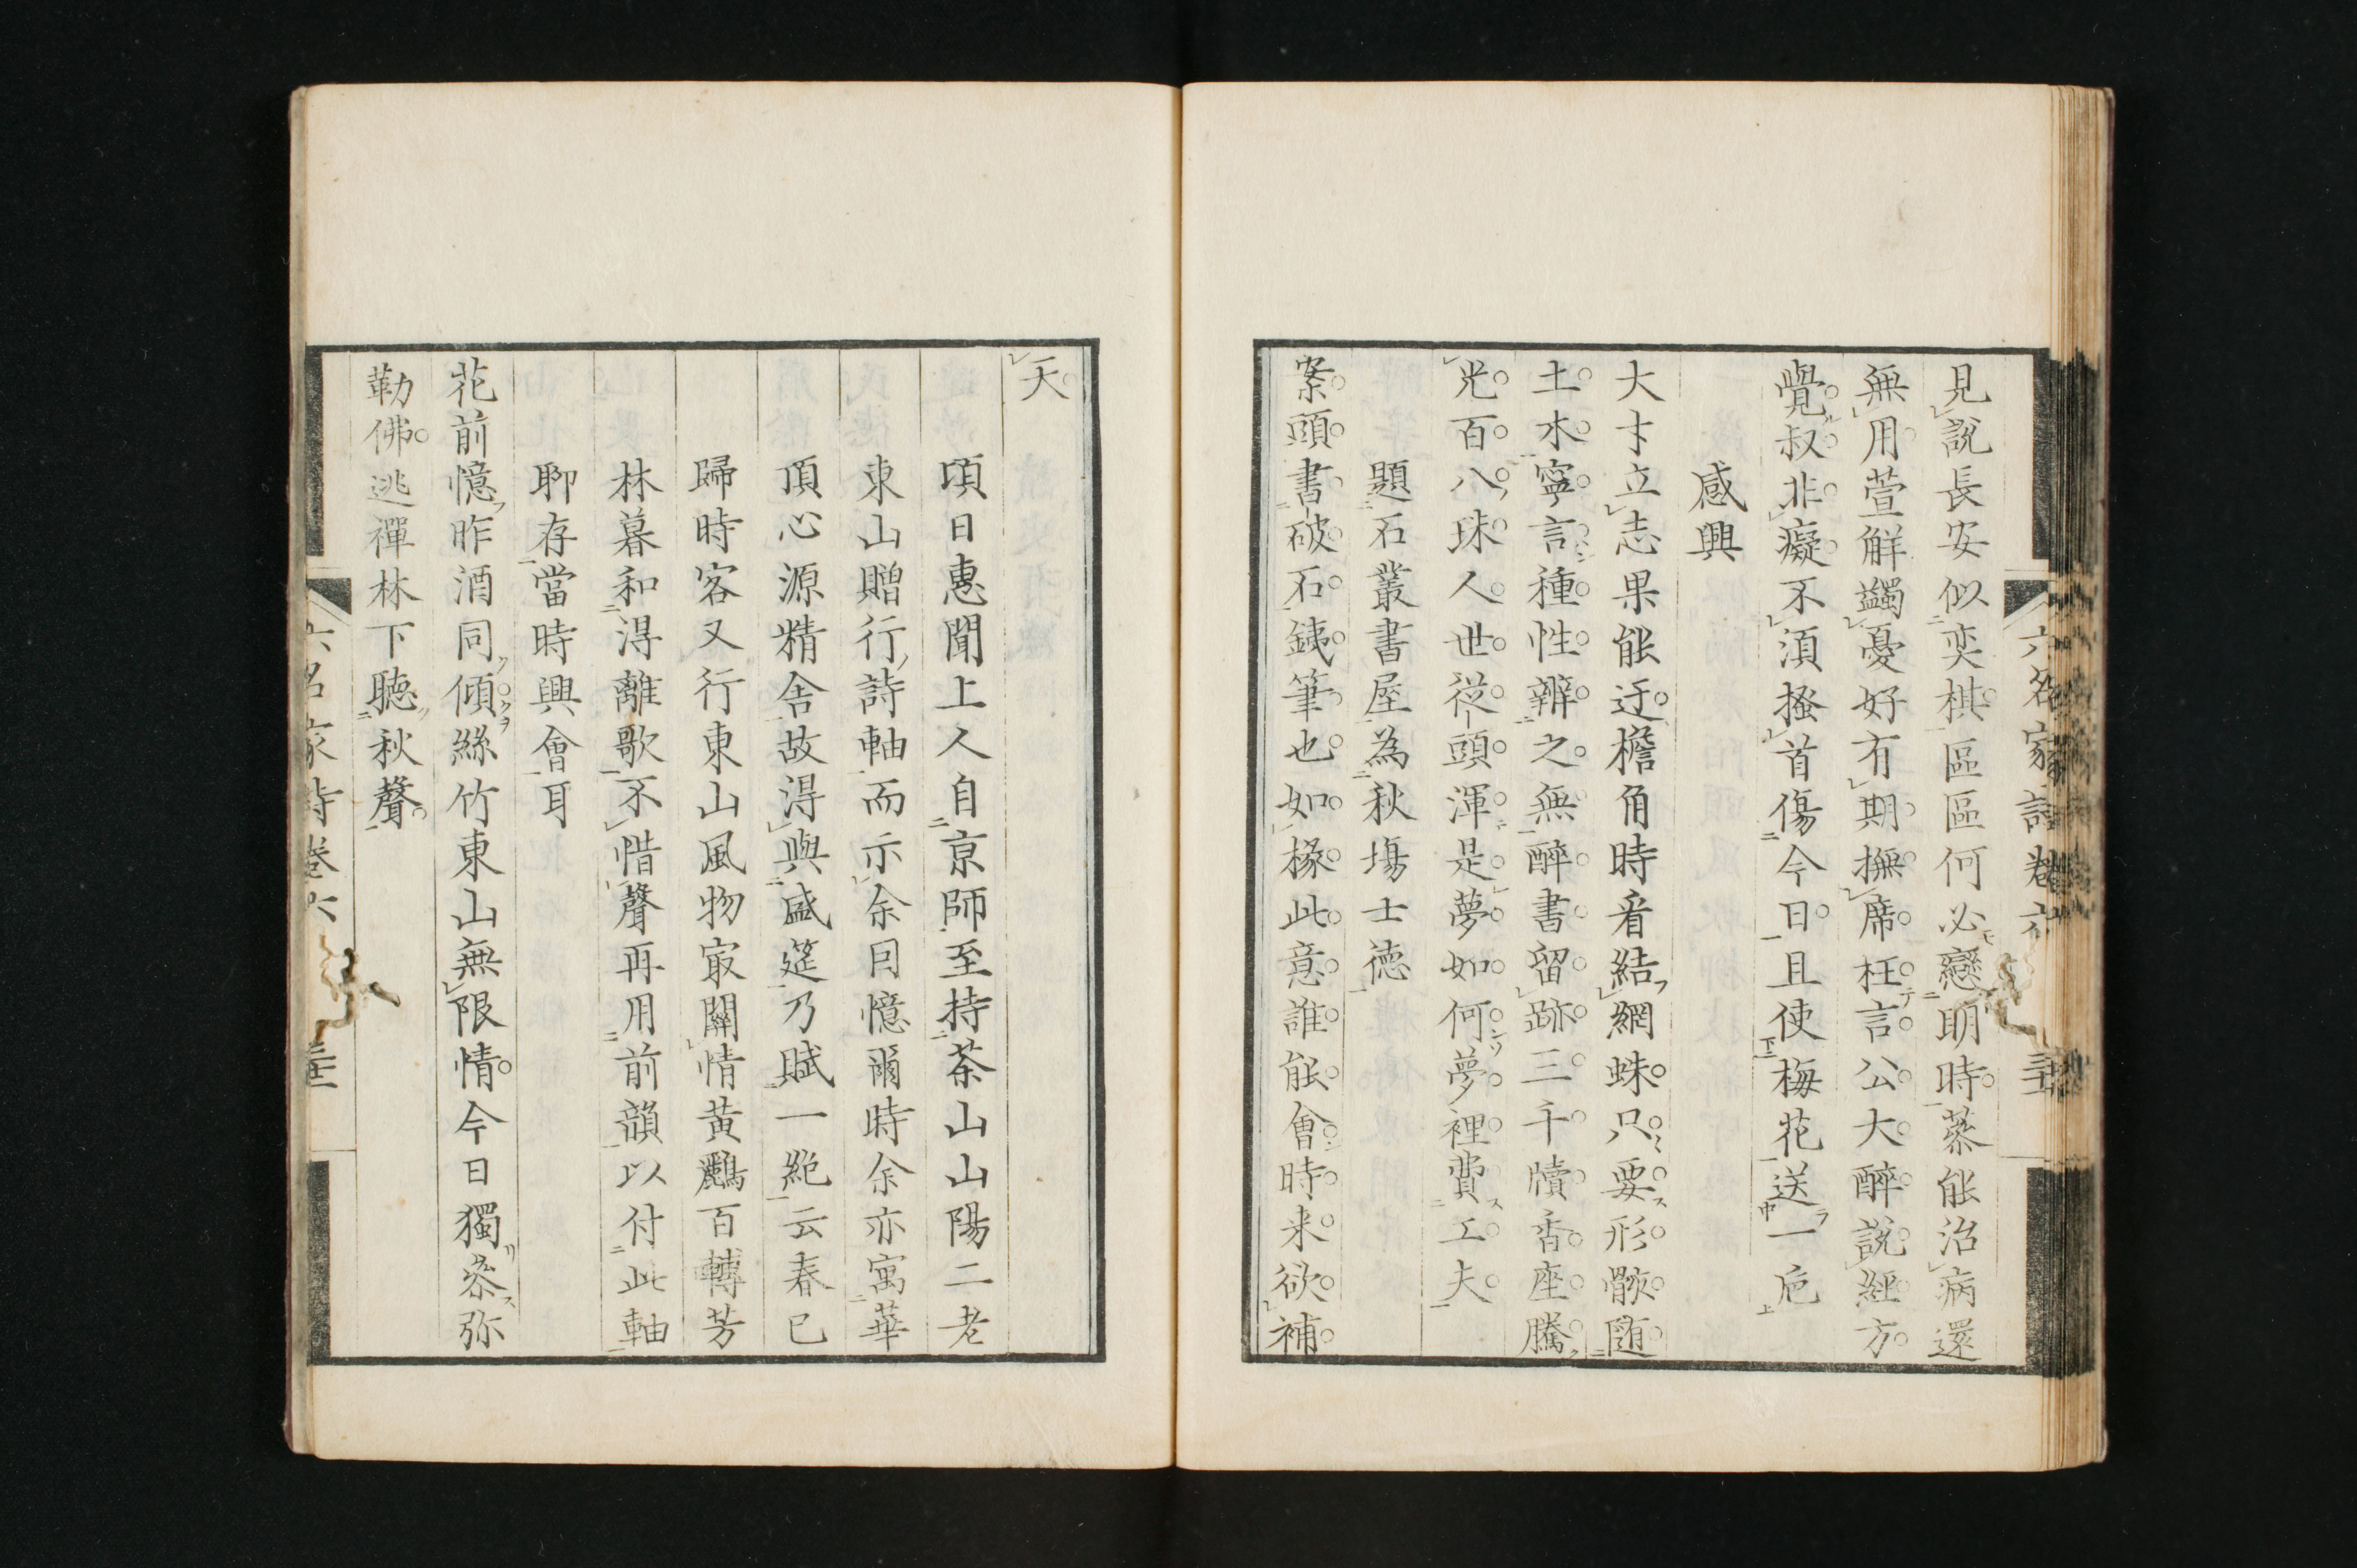 見説長安似奕棋區區何必戀明時蔘能治病還
無用萱觧蠲憂好有期撫席枉言公大醉説經方
覺叔非癡不須搔首傷今日且使梅花送一巵
感興
大才立志果能迂檐角時看結網蛛只要形骸随
土木寧言種性辨之無醉書留跡三千牘香座騰
光百八珠人世從頭渾是夢如何夢裡費工夫
題石叢書屋為秋塲士徳
案頭書破石銕筆也如椽此意誰能會時来欲補
六名家詩巻六
天
頃日惠聞上人自京師至持茶山山陽二老
東山贈行詩軸而示余因憶爾時余亦寓華
頂心源精舎故得與盛筵乃賦一絶云春已
歸時客又行東山風物㝡關情黃鸝百轉芳
林暮和得離歌不惜聲再用前韻以付此軸
聊存當時興會耳
花前憶昨酒同傾絲竹東山無限情今日獨叅弥
勒佛逃禪林下聽秋聲
六名家詩巻六